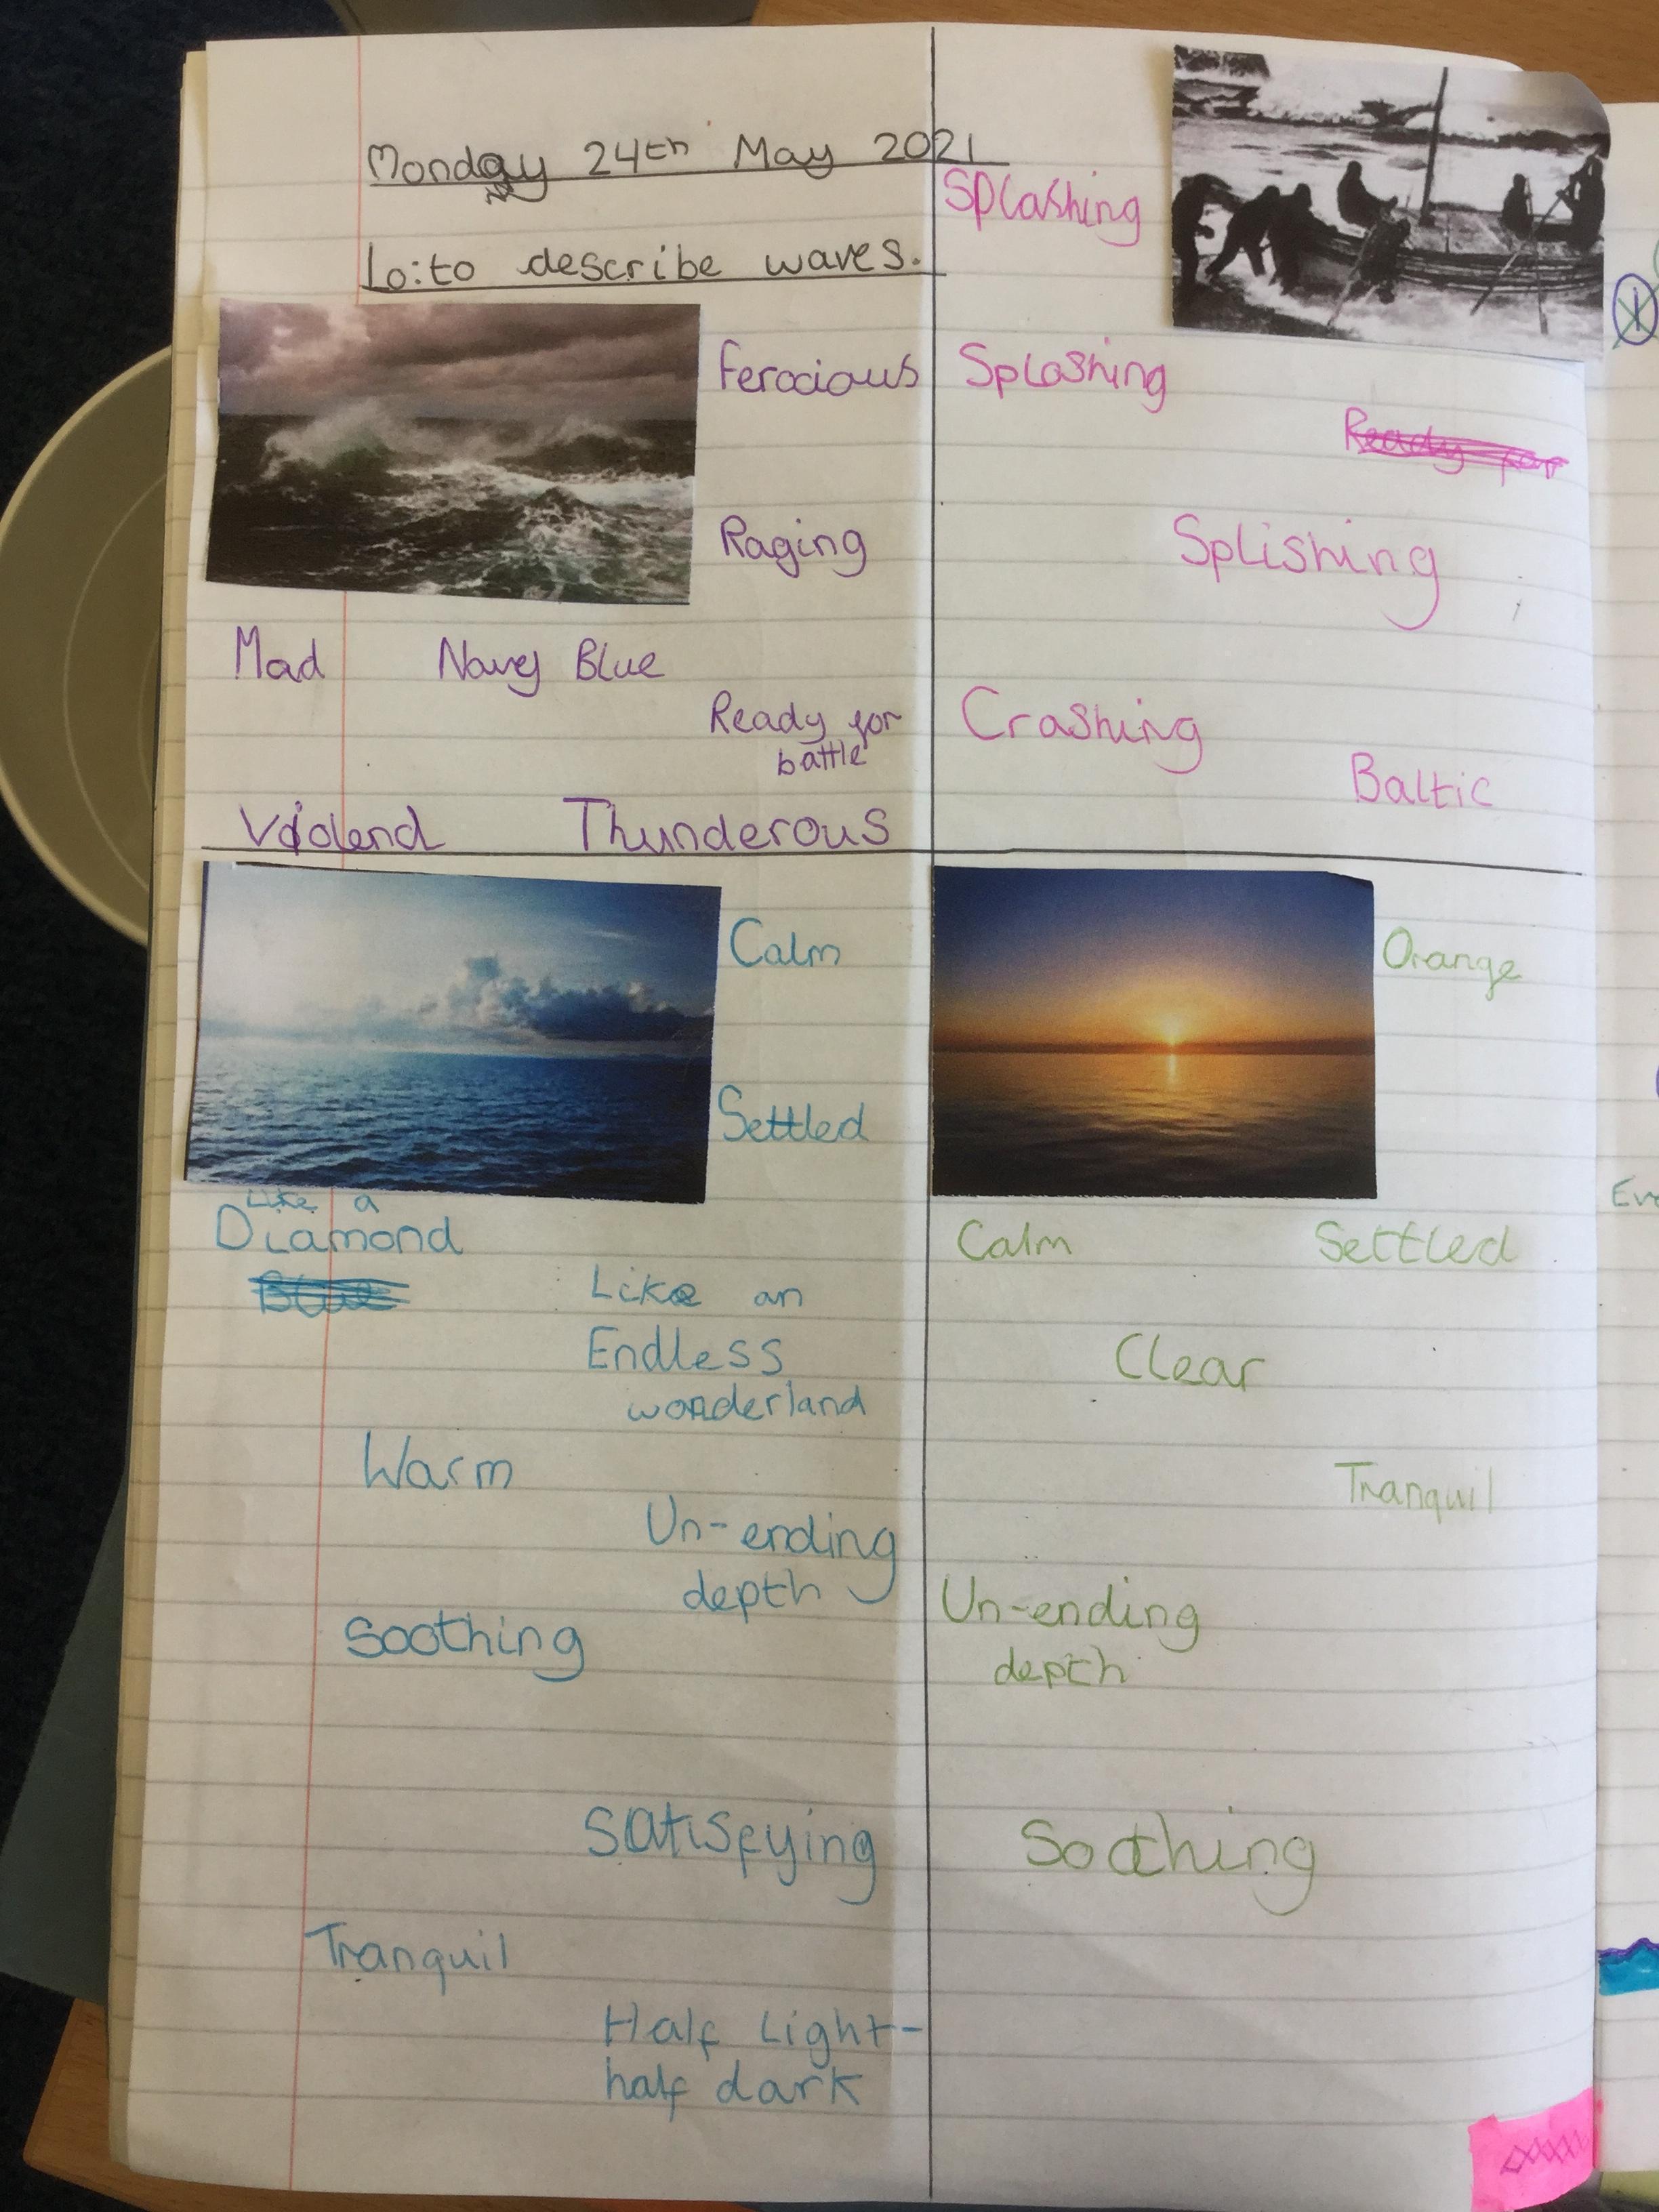 Monday 24th May 2021
Lo: to describe waves.
Ferocious
Raging
Mad Navy Blue
Ready for
battle
Violend Thunderous
Splashing
Splashing
Ready for
Splishing
Crashing
Baltic
Calm
Settled
Like a
Diamond
Blue
Like an
Endless
wonderland
Warm
Un-ending
depth
Soothing
Satisfying
Tranquil
Half Light-
half dark
Orange
Calm Settled
Clear
Tranquil
Un-ending
depth
Soothing